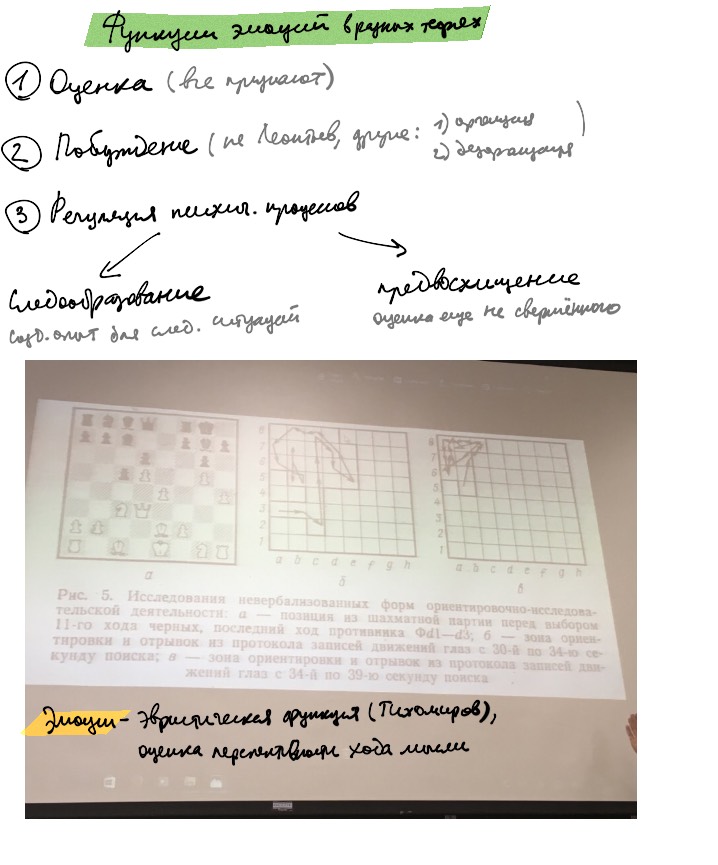 Функции эмоций в разных теориях
1 Оценка (все признают)
2 Побуждение (не Леонтьев, другие: 1) организация
2) дезорганизация)
3 Регуляция психич. процессов
следообразование
предвосхищение
созд. опыт для след. ситуаций
оценка еще не свершённого
8
7
6
5
4
3
2
1
a b c d e f g h
8
7
6
5
4
3
2
1
a b c d e f g h
а
б
в
Рис. 5. Исследования невербализованных форм ориентировочно-исследова-
тельской деятельности: а — позиция из шахматной партии перед выбором
11-го хода черных, последний ход противника Фd1—d3; б — зона ориен-
тировки и отрывок из протокола записей движений глаз с 30-й по 34-ю се-
кунду поиска; в — зона ориентировки и отрывок из протокола записей дви-
жений глаз с 34-й по 39-ю секунду поиска
Эмоции - эвристическая функция (Тихомиров),
оценка перспективности хода мысли